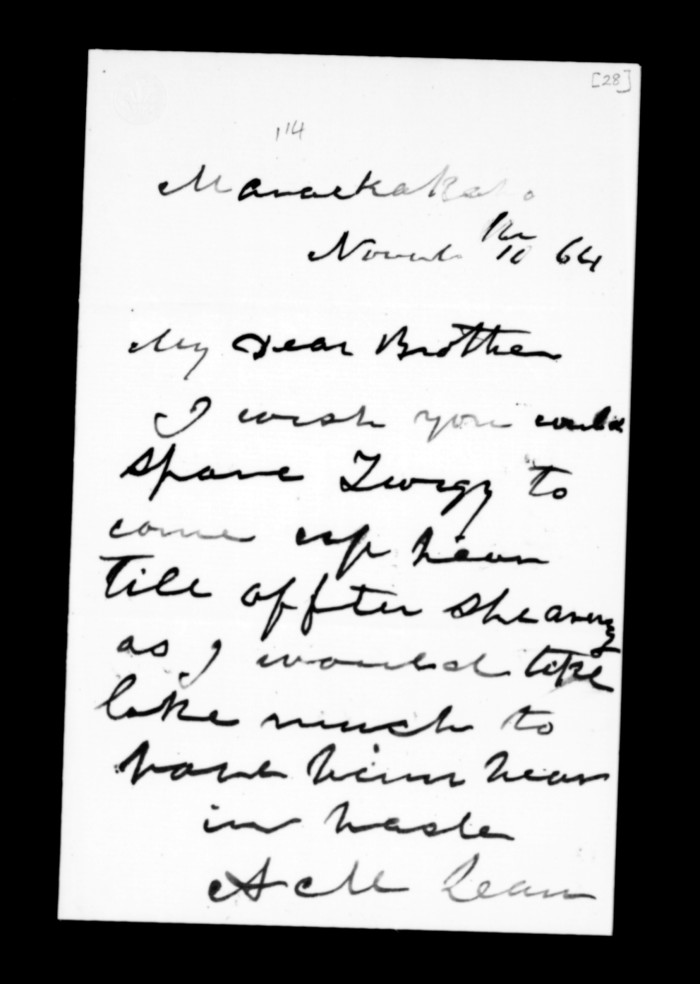 [28]
114
Maraekakaho
Novmb 10 64
My Dear Brother
I wish you could
spare Gorgy to
come up hear
Till affter shearing
as I would
like much to
have him hear
in haste
A McLean